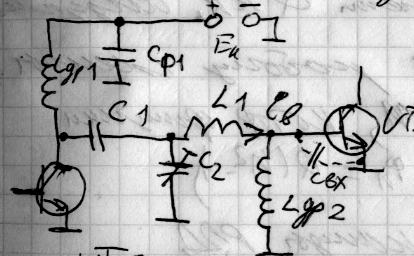 + −
Eк
Lдр1
Cф1
C1
L1
Iв
VT
C2
Cвх
Lдр2